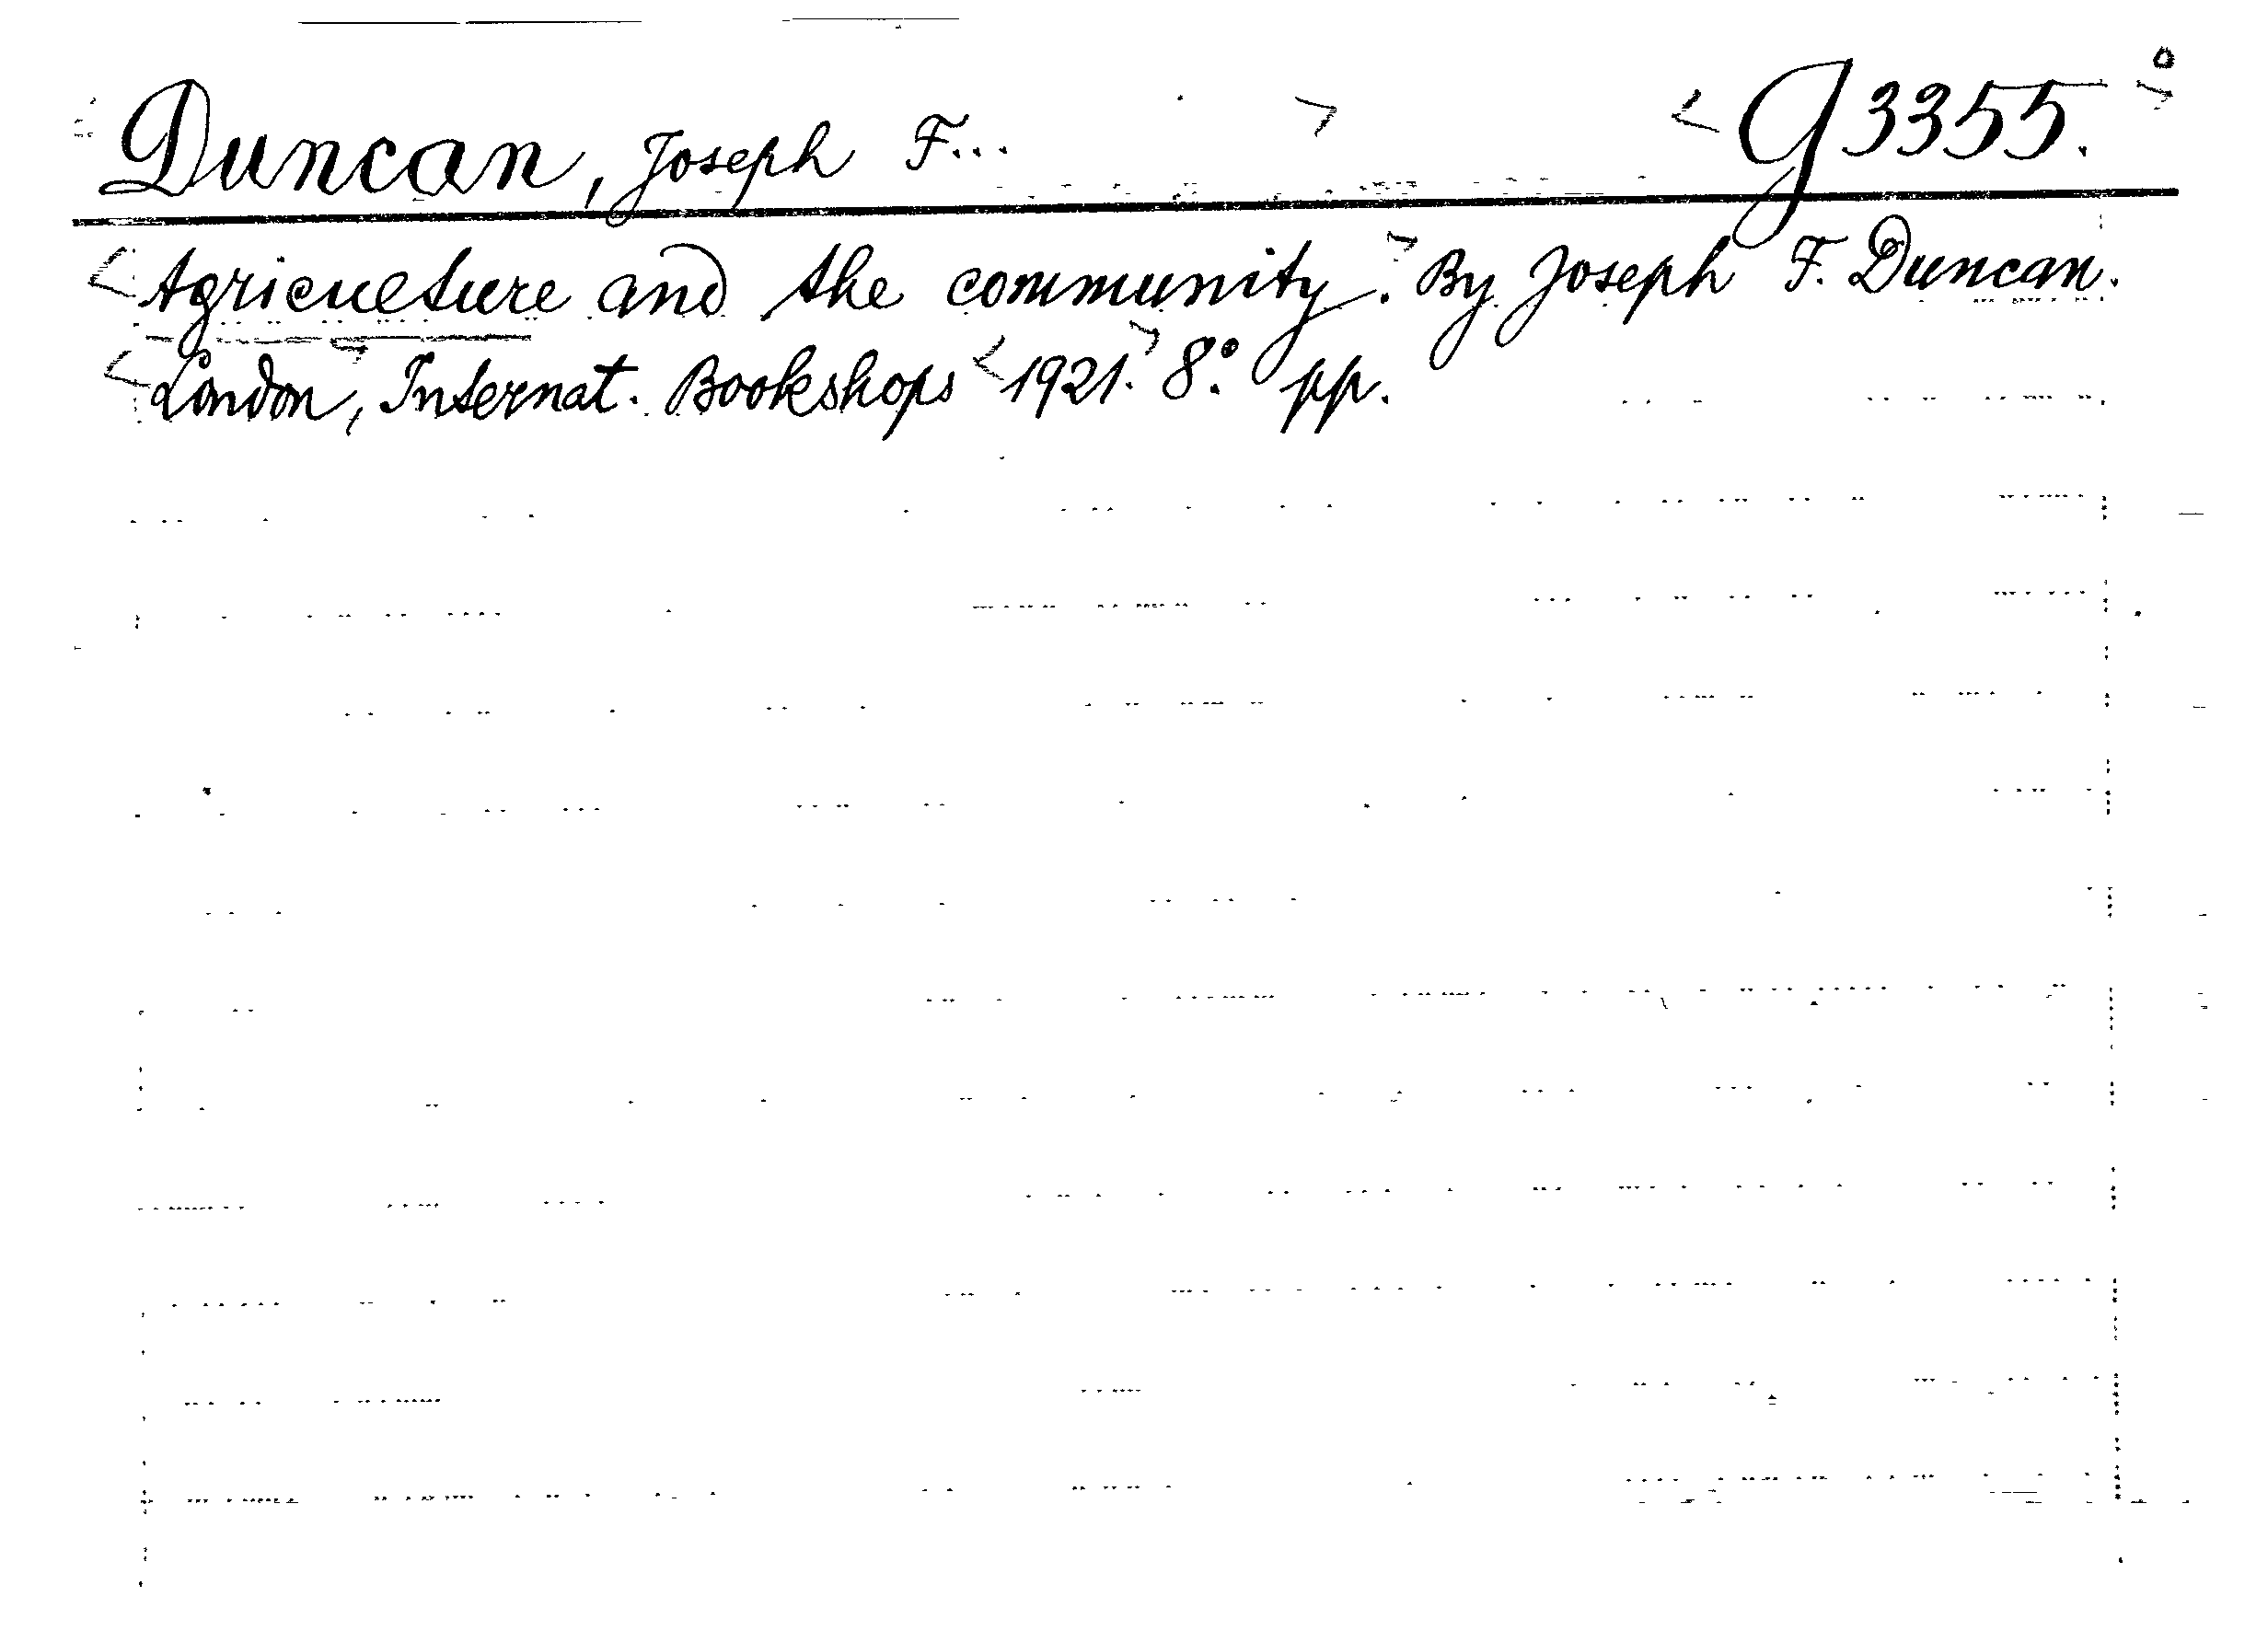 Duncan, Joseph F... G 3355.°
Agriculture and the community. By Joseph F. Duncan.
London, Internat. Bookshops 1921. 8.° pp.